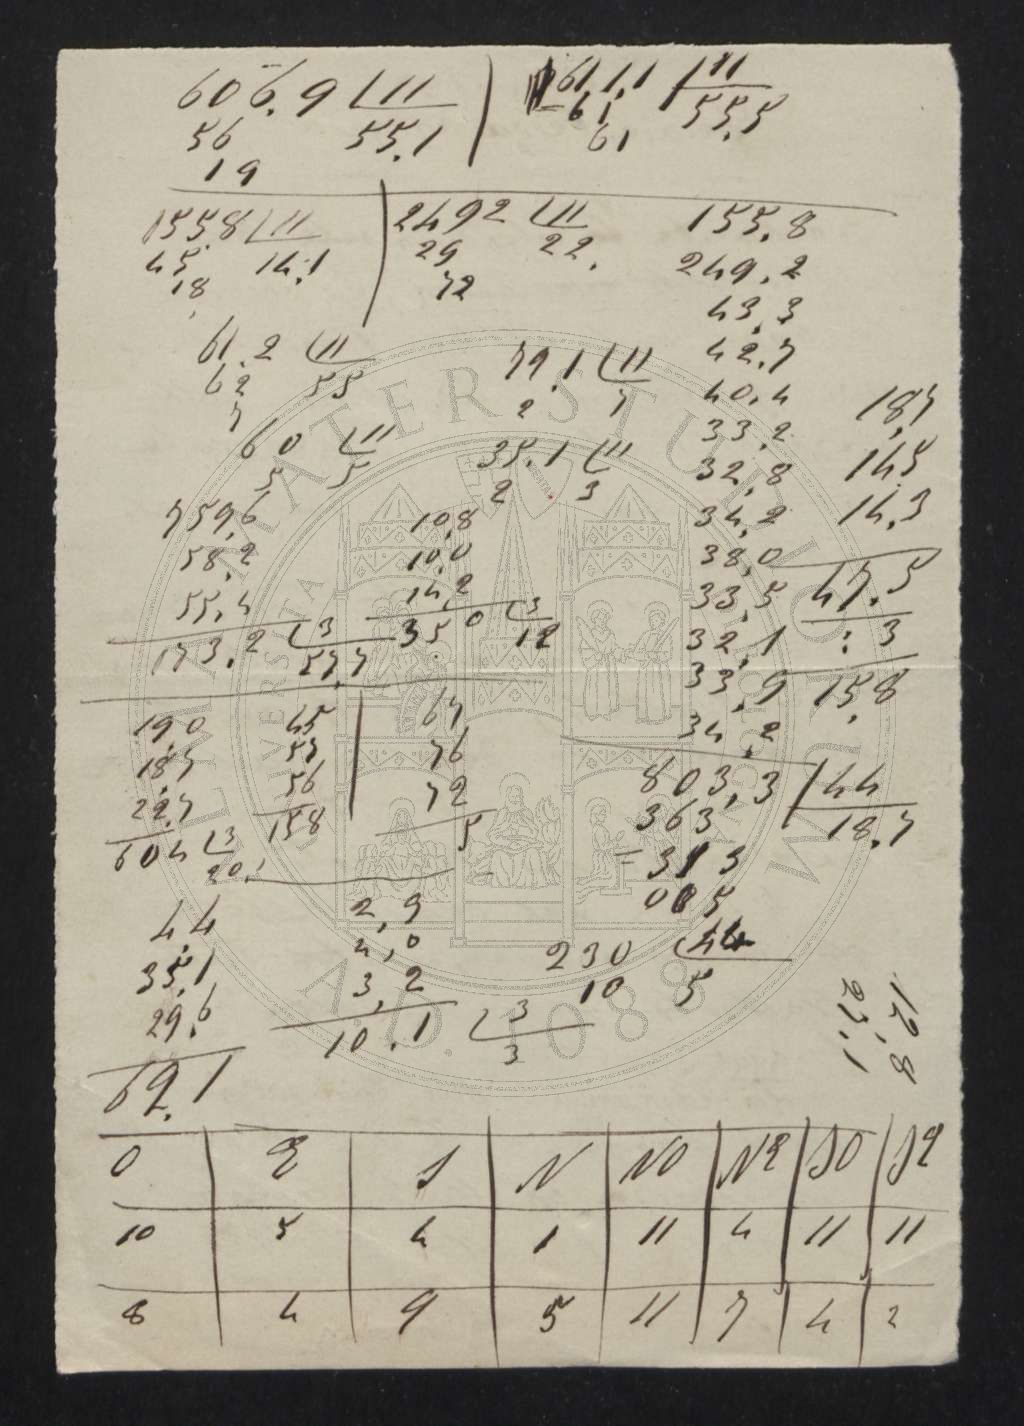 606.9 | 11
56 55.1
19
61.1.1 | 11
61 55.5
61
155.8 | 11
45 14.1
18
2492 | 11
29 22.
72
155.8
249.2
43.3
42.7
40.4
33.2
32.8
34.2
38,0
33,5
32,1
33,9
34,2
803,3 | 44
363 18.7
313
05
61.2 | 11
62 55
7
79.1 | 11
2 7
60 | 11
5 5
35.1 | 11
2 3
18,7
14,5
14,3
47.5
: 3
15,8
759,6
58,2
55,4
173.2 | 3
57,7
10,8
10,0
14,2
35 0 | 3
12
19,0
18,7
22,7
604 | 3
20.1
45
57
56
158
67
76
72
5
4,4
35,1
29,6
69.1
2,9
4,0
3,2
10.1 | 3
3
230 | 44
10 5
12,8
27.1
O E S N NO NE SO SE
10 5 4 1 11 4 11 11
8 4 9 5 11 7 4 2
ALMA MATER STUDIORUM
A.D. 1088